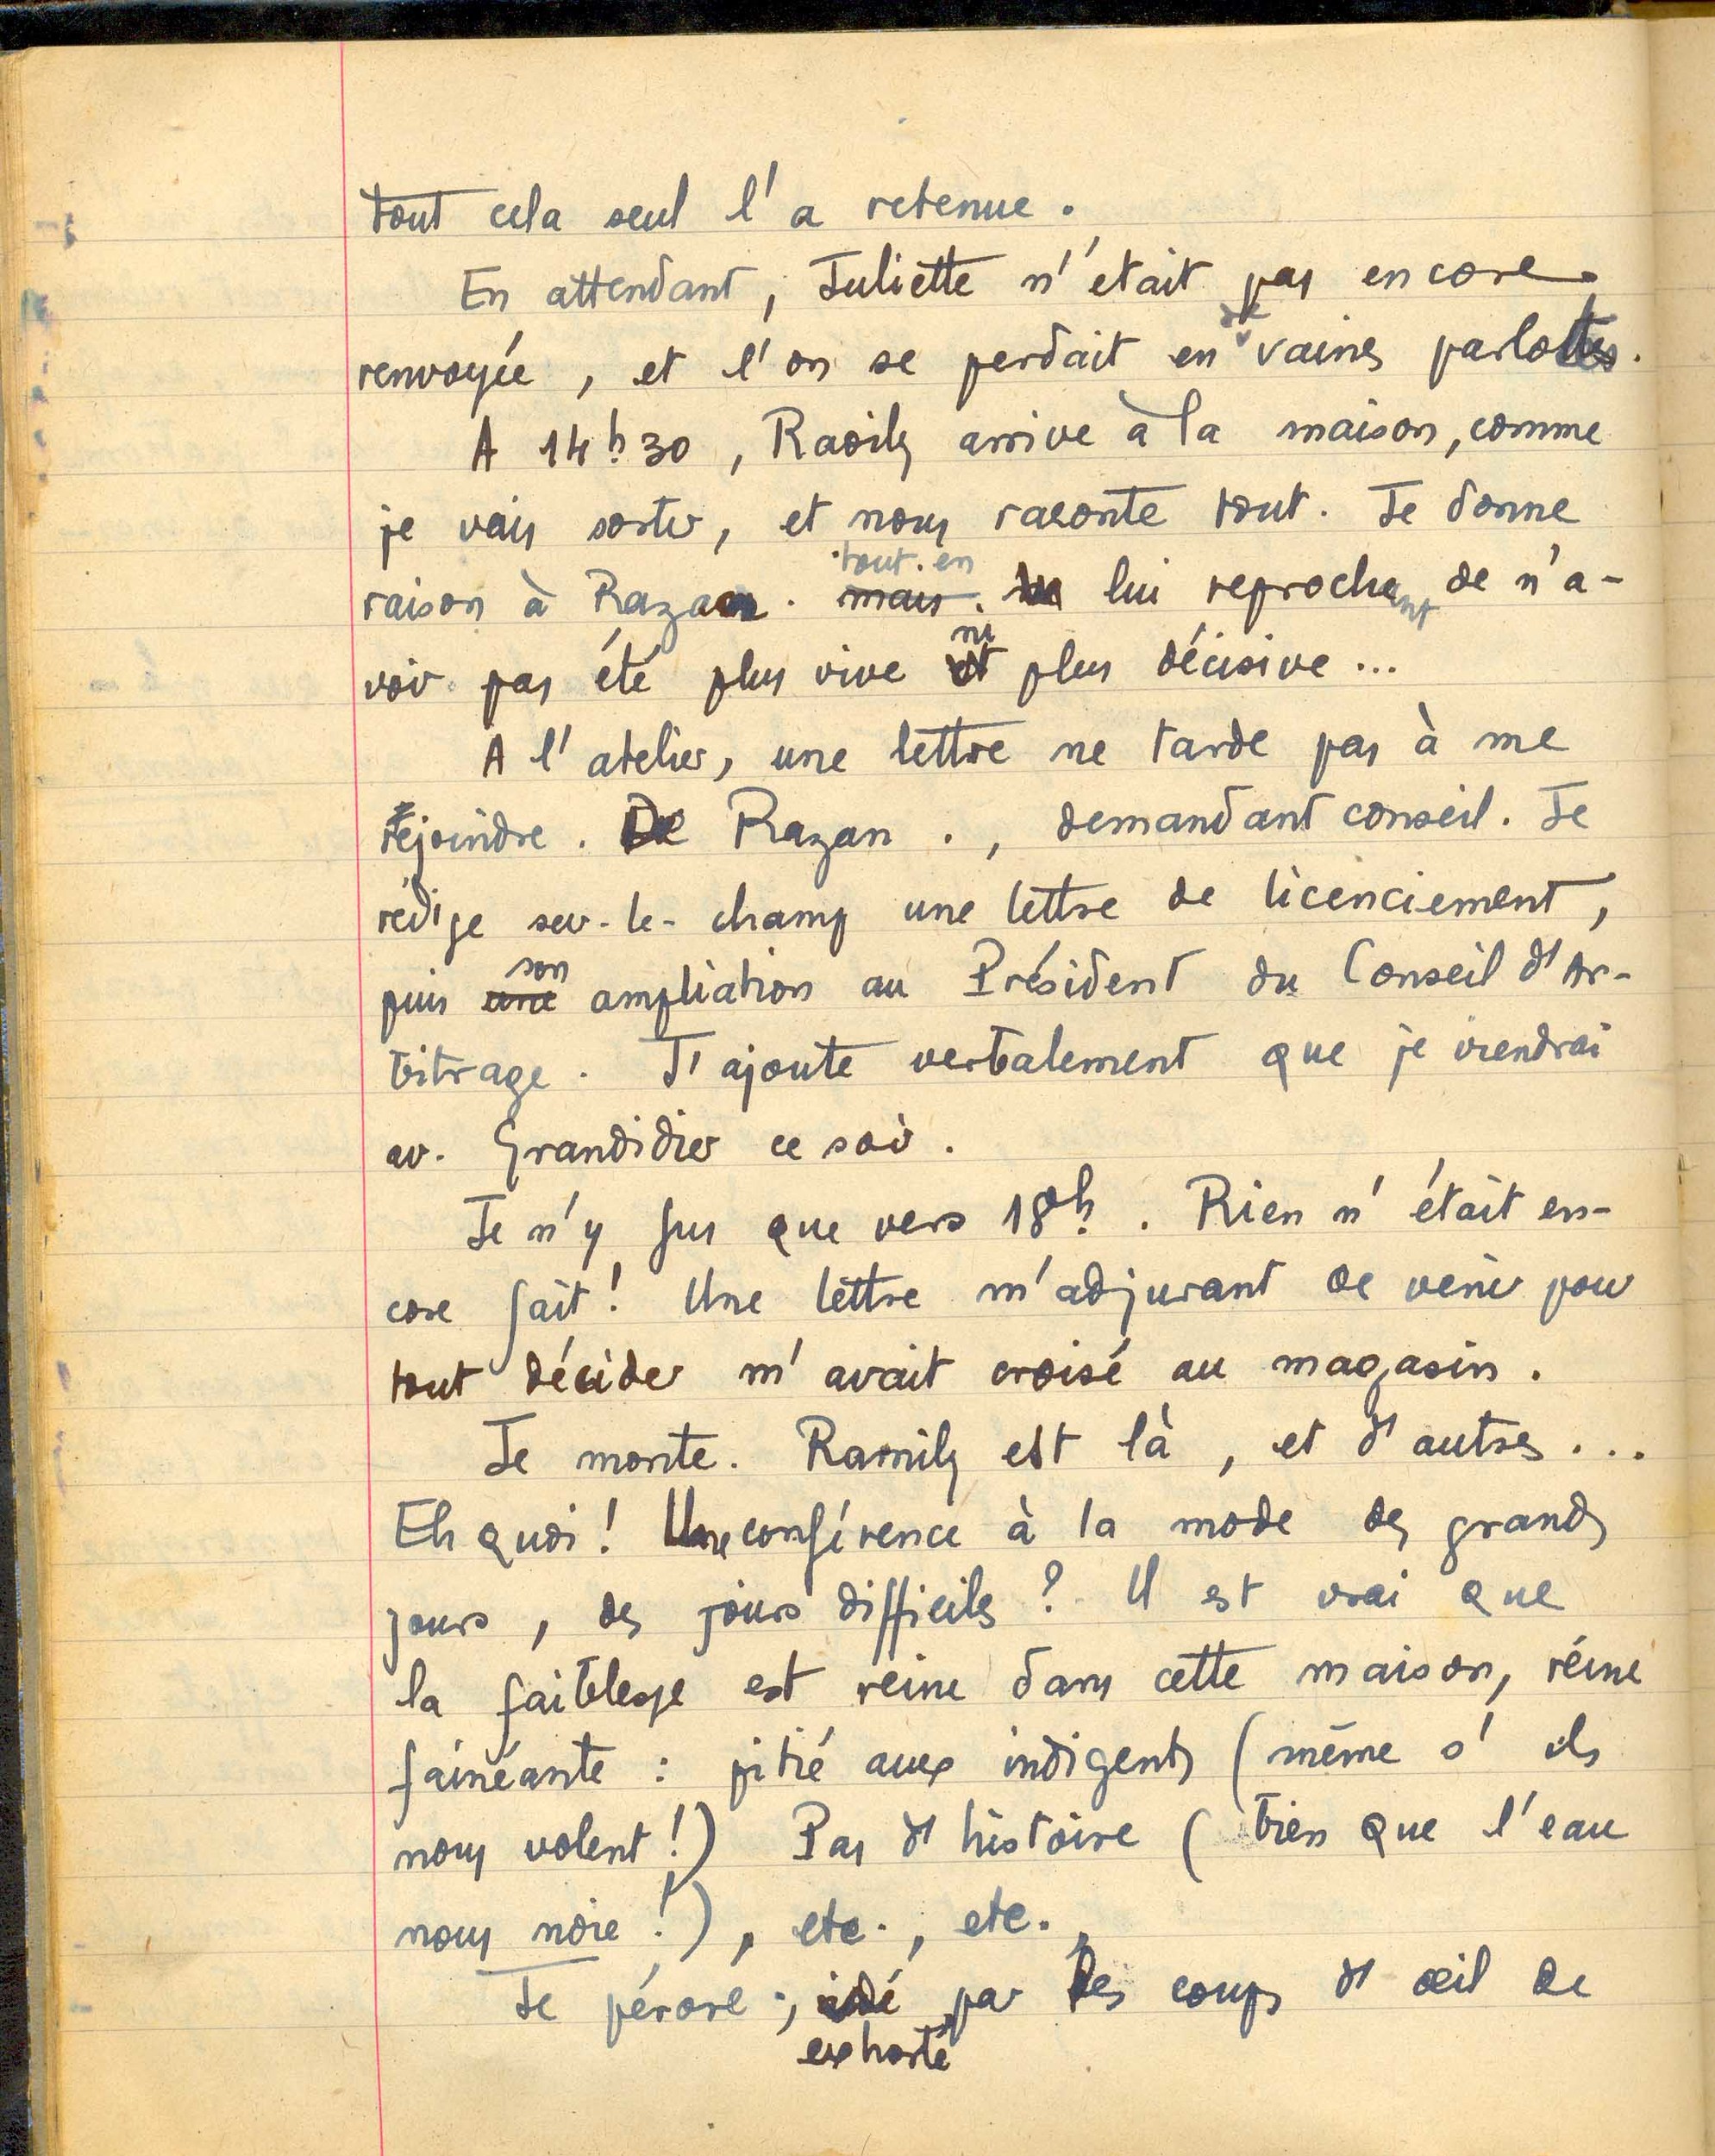 tout cela seul l'a retenue.
En attendant, Juliette n'était pas encore
renvoyée, et l'on se perdait en de vaines parlottes.
A 14h30, Raoily arrive à la maison, comme
je vais sortir, et nous raconte tout. Je donne
raison à Razan. mais tout en lui reprochant de n'a-
voir pas été plus vive et ni plus décisive...
A l'atelier, une lettre ne tarde pas à me
rejoindre. De Razan., demandant conseil. Je
rédige sur-le-champ une lettre de licenciement,
puis une son ampliation au Président du Conseil d'Ar-
bitrage. J'ajoute verbalement que je viendrai
av. Grandidier ce soir.
Je n'y fus que vers 18h. Rien n'était en-
core fait! Une lettre m'adjurant de venir pour
tout décider m'avait croisé au magasin.
Je monte. Ramily est là, et d'autres...
Eh quoi! Une conférence à la mode des grands
jours, des jours difficiles? Il est vrai que
la faiblesse est reine dans cette maison, reine
fainéante : pitié aux indigents (même s'ils
nous volent!) Pas d'histoire (bien que l'eau
nous noie!), etc., etc.
Je pérore, aidé par les coups d'œil de
exhorté